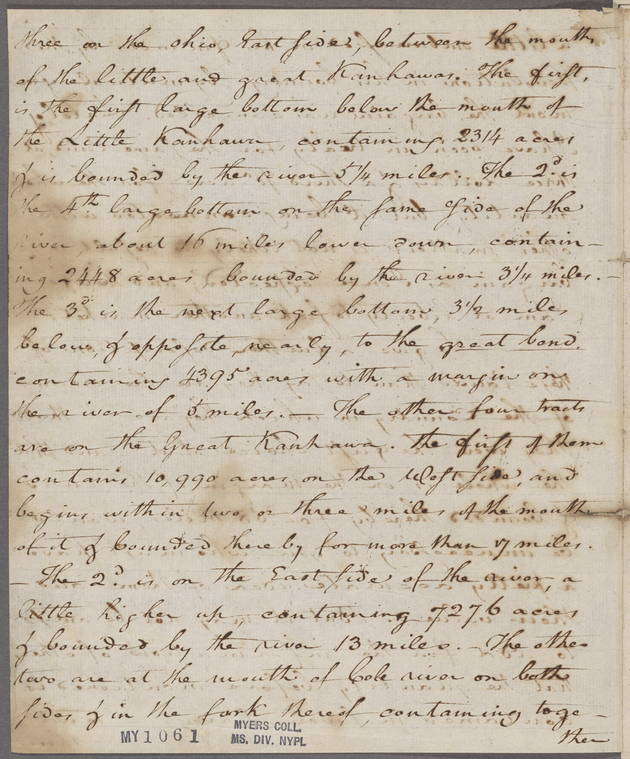 three on the ohio, East side, between the mouths
of the little and great Kanhawas. The first,
is the first large bottom below the mouth of
the Little Kanhawa, containing 2314 acres
& is bounded by the river 5 1/4 miles. The 2d. is
the 4th large bottom on the same side of the
river, about 16 miles lower down, contain-
ing 2448 acres, bounded by the river 3 1/4 miles. -
The 3d is the next large bottom, 3 1/2 miles
below, & opposite, nearly, to the great bend.
containing 4395 acres with a margin on
the river of 5 miles. — The other four tracts
are on the Great Kanhawa. the first of them
contains 10,990 acres on the West side, and
begins within two or three miles of the mouth
of it & bounded thereby for more than 17 miles.
- The 2d. is on the East side of the river, a
little higher up - containing 7276 acres
& bounded by the river 13 miles. - The other
two are at the mouth of Cole river on both
sides & in the fork thereof, containing toge-
ther
MY1061
MYERS COLL.
MS. DIV. NYPL